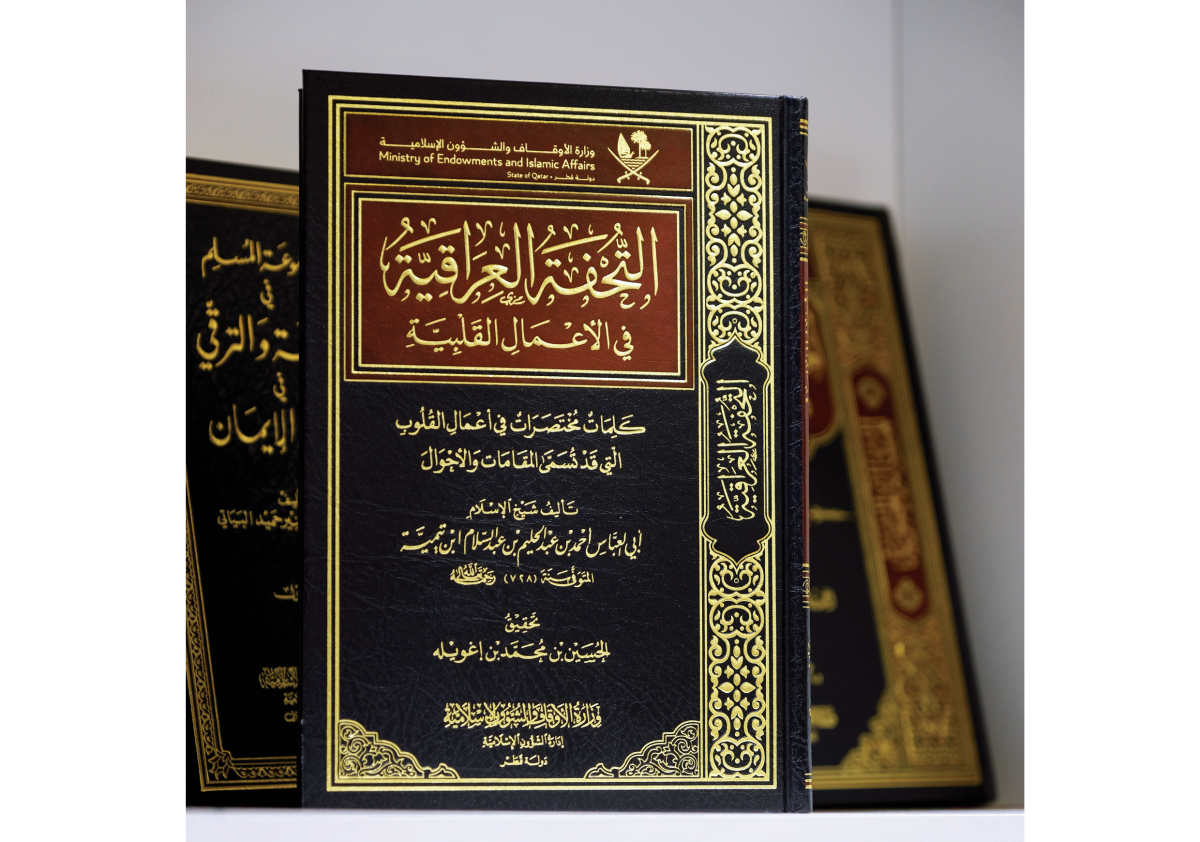 وزارة الأوقاف والشؤون الإسلامية
Ministry of Endowments and Islamic Affairs
State of Qatar • دولة قطر
التُّحْفَةُ العِرَاقِيَّةُ
فِي الأَعْمَالِ القَلْبِيَّةِ
كَلِمَاتٌ مُخْتَصَرَاتٌ فِي أَعْمَالِ القُلُوبِ
الَّتِي قَدْ تُسَمَّى المَقَامَات وَالأَحْوَالَ
تَأليفُ شَيْخِ الإِسْلَامِ
أَبِي العَبَّاسِ أَحْمَدَ بْنِ عَبْدِ الحَلِيمِ بْنِ عَبْدِ السَّلَامِ ابْنِ تَيْمِيَّةَ
المُتَوَفَّى سَنَةَ (٧٢٨) رَحِمَهُ اللَّهُ
تَحْقِيقُ
الحُسَيْنِ بْنِ مُحَمَّدِ بْنِ إغويله
وَزَارَةُ الأَوْقَافِ وَالشُّؤُونِ الإِسْلَامِيَّةِ
إِدَارَةُ الشُّؤُونِ الإِسْلَامِيَّةِ
دَوْلَة قَطَر
التُّحْفَةُ العِرَاقِيَّةُ
المُسلِم
وَالترقّي
الإيمَان
حميد البياتي